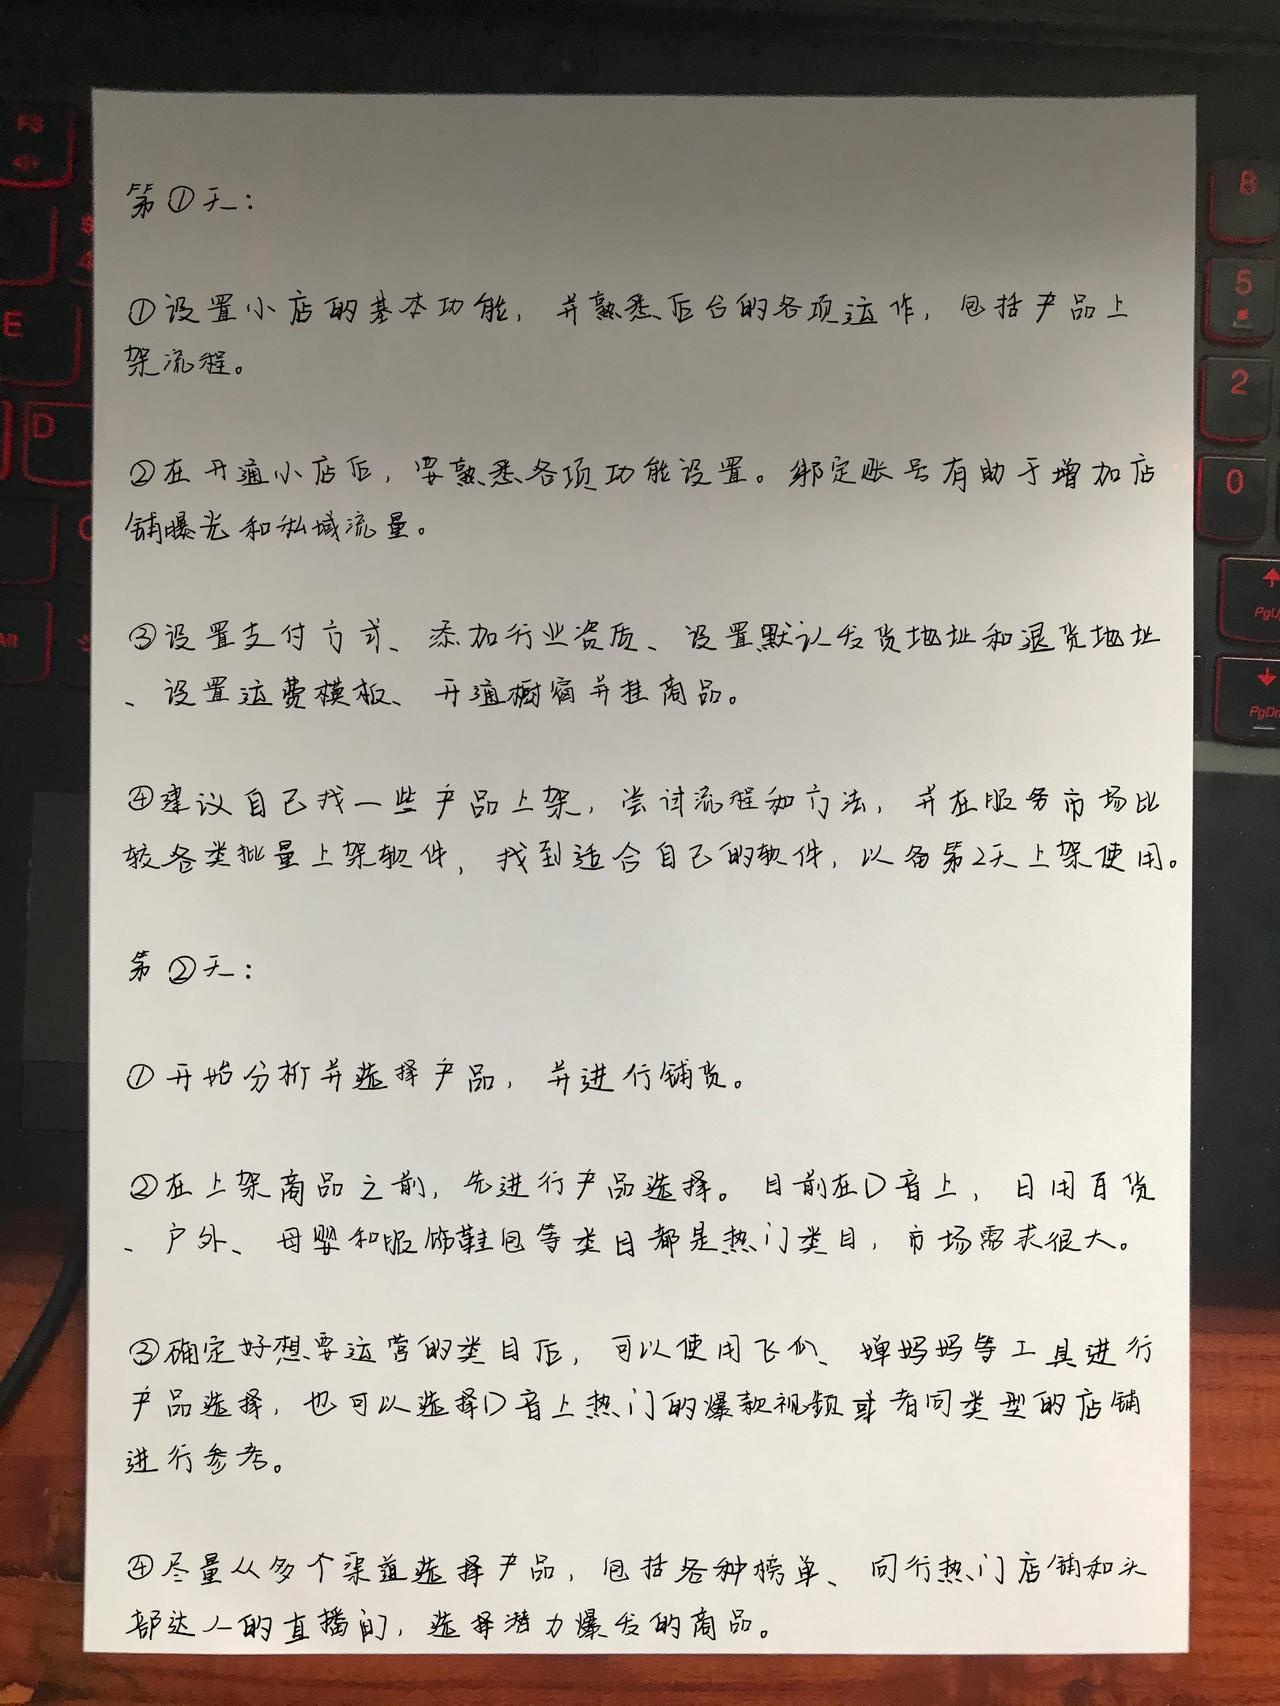 第①天：
①设置小店的基本功能，并熟悉后台的各项运作，包括产品上
架流程。
②在开通小店后，要熟悉各项功能设置。绑定账号有助于增加店
铺曝光和私域流量。
③设置支付方式、添加行业资质、设置默认发货地址和退货地址
、设置运费模板、开通橱窗并挂商品。
④建议自己找一些产品上架，尝试流程和方法，并在服务市场比
较各类批量上架软件，找到适合自己的软件，以备第2天上架使用。
第②天：
①开始分析并选择产品，并进行铺货。
②在上架商品之前，先进行产品选择。目前在D音上，日用百货
、户外、母婴和服饰鞋包等类目都是热门类目，市场需求很大。
③确定好想要运营的类目后，可以使用飞瓜、婵妈妈等工具进行
产品选择，也可以选择D音上热门的爆款视频或者同类型的店铺
进行参考。
④尽量从多个渠道选择产品，包括各种榜单、同行热门店铺和头
部达人的直播间，选择潜力爆发的商品。
F8
E
D
Alt
8
5
2
0
PgU
PgDn